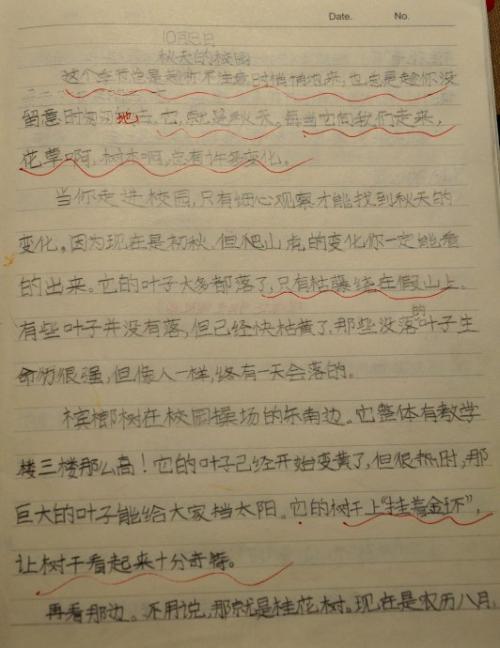 Date. No.
10月12日
秋天的校园
这个季节总是趁你不注意时悄悄地来,也总是趁你没
留意时匆匆地走。它,就是秋天。每当它向我们走来,
花草啊,树木啊,总有许多变化。
当你走进校园,只有细心观察才能找到秋天的
变化。因为现在是初秋,但爬山虎的变化你一定能看
的出来。它的叶子大多都落了,只有枯藤绕在假山上。
有些叶子并没有落,但已经快枯黄了,那些没落的叶子生
命力很强,但像人一样,终有一天会落的。
槟榔树在校园操场的东南边。它整体有教学
楼三楼那么高!它的叶子已经开始变黄了,但很热时,那
巨大的叶子能给大家挡太阳。它的树干上“挂着金环”,
让树干看起来十分奇特。
再看那边。不用说,那就是桂花树。现在是农历八月,